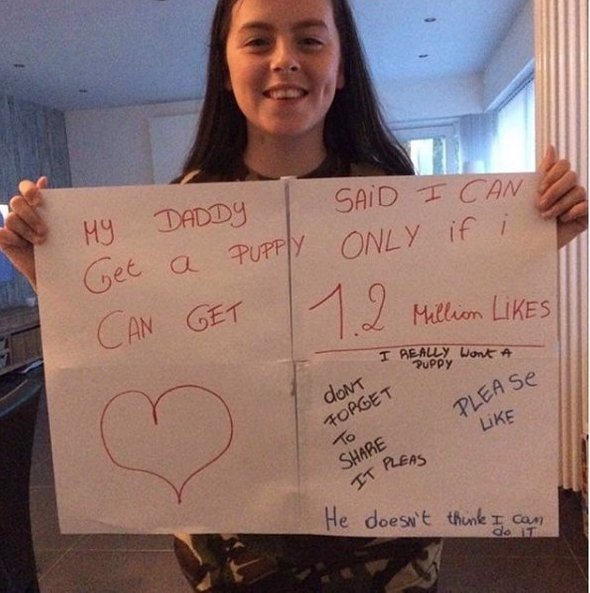 MY DADDY SAID I CAN
Get a PUPPY ONLY if i
CAN GET 1.2 Million LIKES
I REALLY Want A
PUPPY
dONT
FORGET
To
SHARE
IT PLEAS
PLEASe
LIKE
He doesn't think I can
do iT